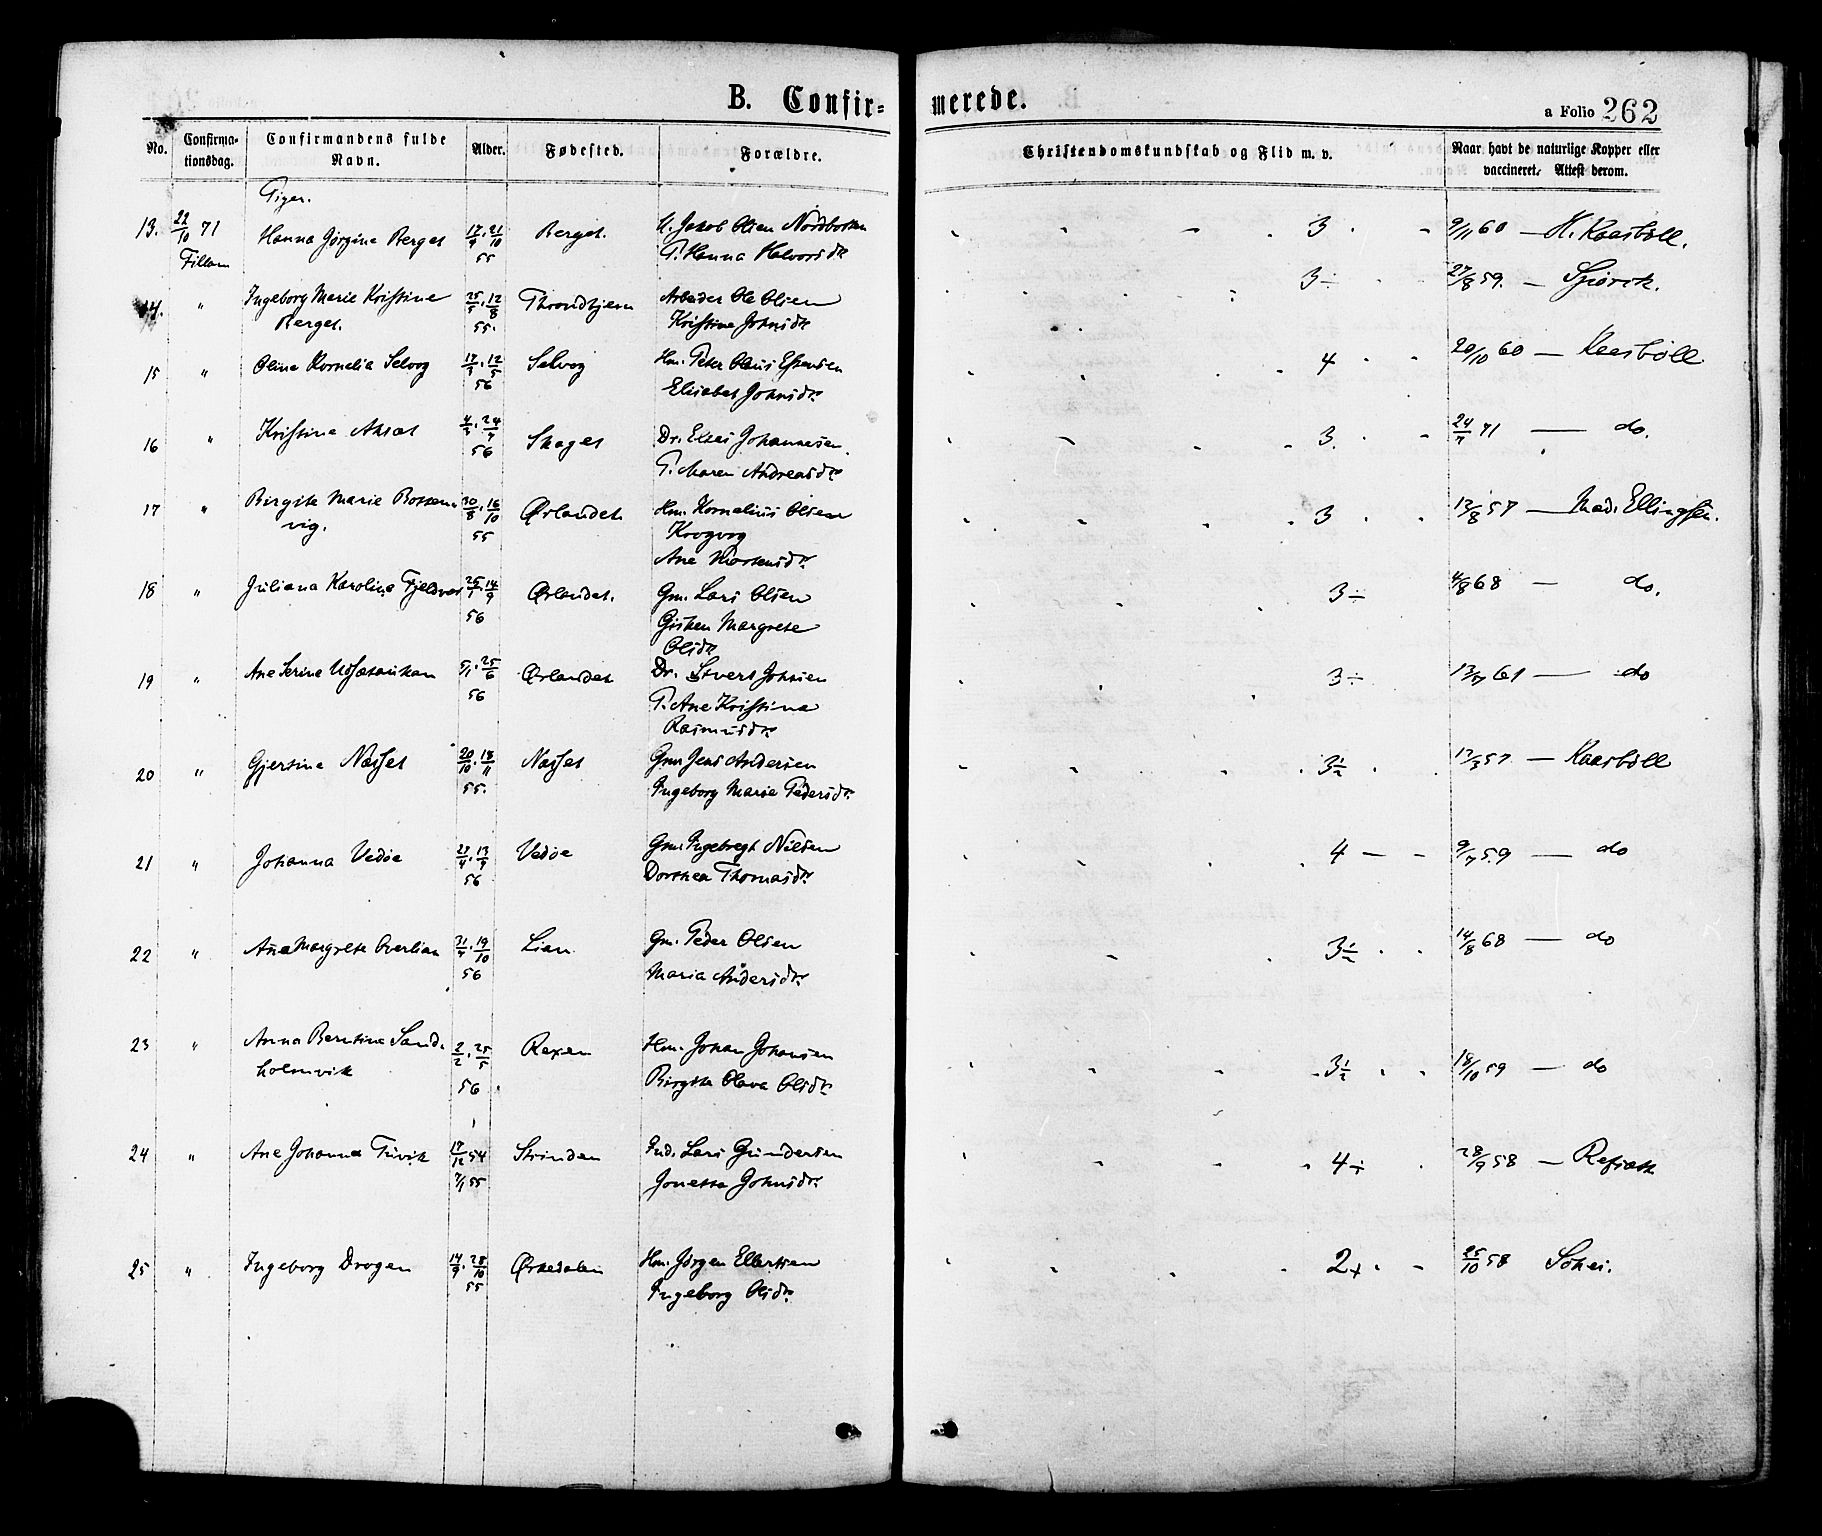 B. Confir-
merede.
a Folio 262
No.
Confirma-
tionsdag.
Confirmandens fulde
Navn.
Alder.
Fødested.
Forældre.
Christendomskundskab og Flid m. v.
Naar havt de naturlige Kopper eller
vaccineret. Attest derom.
Piger.
13. 22/10 71 Hanna Jørgine Berget 17/9 . 21/10 Berget. U. Jakob Olsen Nordbotten 3 9/11 60 — H. Kaasbøll.
Fillan 55 P. Hanna Halvorsdr
14. " Ingeborg Marie Kristine 25/5 . 12/8 Throndhjem Arbeider Ole Olsen 3 ÷ 27/8 59. —
Berget. 55. Kristine Johnsdr
15 " Oline Kornelia Selvog 17/3 . 12/5 Selvog Hm. Peter Olaus Estensen 4 20/10 60 — Kaasbøll
56 Elisabet Johnsdr.
16 " Kristine 4/3 . 24/4 Skaget Dr. Elias Johannesen. 3. 24/7 71 — do.
56 P. Maren Andreasdr
17 " Birgite Marie Botten- 30/8 . 16/10 Ørlandet. Hm. Kornelius Olsen 3 13/8 57 — Mad. Ellingsen.
vig. 55 Krogvog
Ane Mortensdr.
18 " Juliana Karoline Fjeldvær 25/7 . 14/9 Ørlandet. Gm. Lars Olsen 3 ÷ 4/8 68 — do.
56 Gisken Margrete
Olsdr
19 " Ane Serine 5/1 . 25/6 Ørlandet Dr. Sivert Johnsen 3 ÷ 13/7 61 — do
56 P. Ane Kristina
Rasmusdr.
20 " Gjertine Næsset 20/10 . 18/11 Næsset Gm Jens Andersen 3½ 17/3 57. — Kaasbøll
55. Ingeborg Marie Pedersdr.
21 " Johanna Vedøe 27/4 . 13/9 Vedøe Gm. Ingebregt Nilsen 4 — — 9/7 59 — do
56 Dorthea Thomasdr.
22 " Ane Margrete Overlian 31/7 . 19/10 Lian Gm. Peder Olsen 3½ 14/8 68 — do
56 Maria Andersdr.
23 " Anna Berntine Sand- 2/2 . 25/5 Rexen Hm. Johan Johansen 3½ 18/10 59 — do
holmvik 56 Birgite Olava Olsdr.
24 " Ane Johanna Tirvik 17/12 54 Strinden Ind. Lars Gundersen 4 ÷ 28/9 58 —
7/1 55 Jonetta Johnsdr.
25 " Ingeborg Drogen 14/9 . 28/10 Ørkedalen Hm. Jørgen Ellertsen 2+ 25/10 58
55 Ingeborg Olsdr.